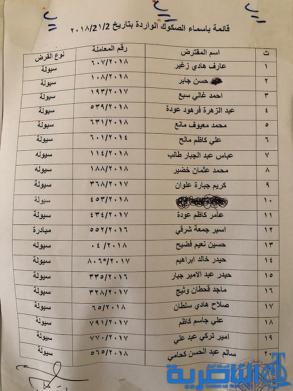 قائمة باسماء الصكوك الواردة بتاريخ ٢٠١٨/٢١/٢
ت اسم المقترض رقم المعاملة نوع القرض
١ عارف هادي زغير ٦٠٧/٢٠١٨ سيولة
٢ حسن جابر ١٠٨/٢٠١٨ سيولة
٣ احمد غالي سبع ١٩٣/٢٠١٨ سيولة
٤ عبد الزهرة فرهود عودة ٥٣٩/٢٠١٨ سيولة
٥ محمد معيوف مانع ٦٣١/٢٠١٨ سيولة
٦ علي كاظم مانح ٦٠١/٢٠١٤ سيولة
٧ عباس عبد الجبار طالب ١١٤/٢٠١٨ سيولة
٨ محمد عثمان خضير ١٨٨/٢٠١٨ سيولة
٩ كريم جبارة علوان ٣٦٨/٢٠١٧ سيولة
١٠ ٤٥٣/٢٠١٨ سيولة
١١ عامر كاظم عودة ٤٣٤/٢٠١٧ سيولة
١٢ اسير جمعة شرقي ٥٥٢/٢٠١٦ مبادرة
١٣ حسين نعيم فضيح ٠٤/٢٠١٨ سيولة
١٤ حيدر خالد ابراهيم ٨٠٦٩/٢٠١٧ سيولة
١٥ حيدر عبد الامير جبار ٣٣٥/٢٠١٦ سيولة
١٦ ماجد قحطان وثيج ٣٢٨/٢٠١٧ سيولة
١٧ صلاح هادي سلطان ٦٥/٢٠١٨ سيولة
١٨ علي جاسم كاظم ٧٩١/٢٠١٧ سيولة
١٩ امير تركي عبد علي ٧٧٠/٢٠١٧ سيولة
٢٠ سالم عبد الحسن كحامي ٥٦٥/٢٠١٨ سيولة
الناصرية